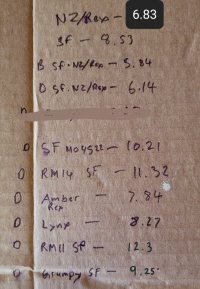 NZ/Rex - 6.83
SF - 8.53
B SF·NZ/Rex - 5.84
D SF·NZ/Rex - 6.14
D SF M04522 - 10.21
D RM14 SF - 11.32
D Amber Rex - 7.84
D Lynx - 8.27
D RM11 SF - 12.3
D Grumpy SF - 9.25